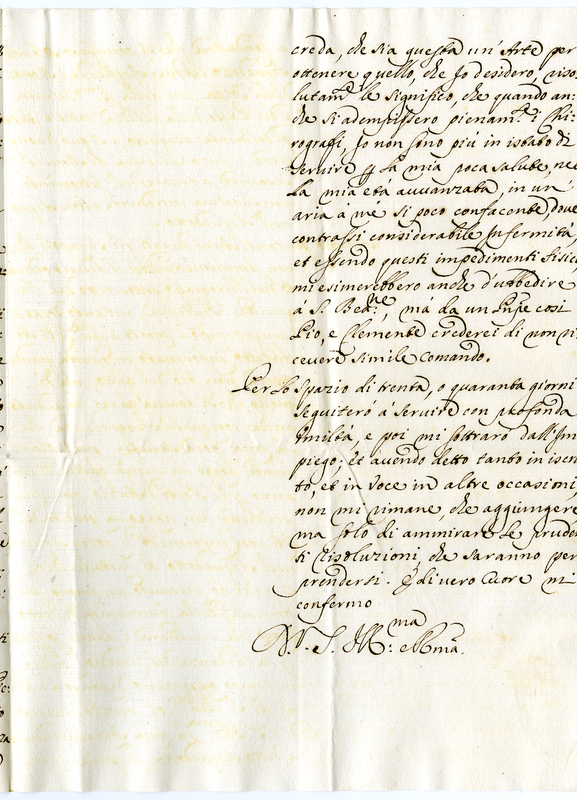 creda, che sia questa un' Arte per
ottenere quello, che Io desidero, riso
lutam.te le significo, che quando an:
che si adempissero pienam.te i Chi:
rografi, Io non sono più in istato di
servire p la mia poca salute, ne
la mia età avvanzata, in un
aria à me si poco confacente dove
contrassi considerabile infermità,
et essendo questi impedimenti fisici
mi esimerebbero anche d'ubbedire
à S. Bea.ne, mà da un Pnpe cosi
Pio, e Clemente crederei di non ri
cevere simile comando.
Per lo spazio di trenta, o quaranta giorni
seguiterò à servire con profonda
Umiltà, e poi mi sottrarò dall' Im
piego; et avendo detto tanto in iscrit
to, et in voce in altre occasioni,
non mi rimane, che aggiungere
ma solo di ammirare le pruden
ti risoluzioni, che saranno per
prendersi. E di vero Cuore mi
confermo
D. V. S. Ill:ma e Rma.